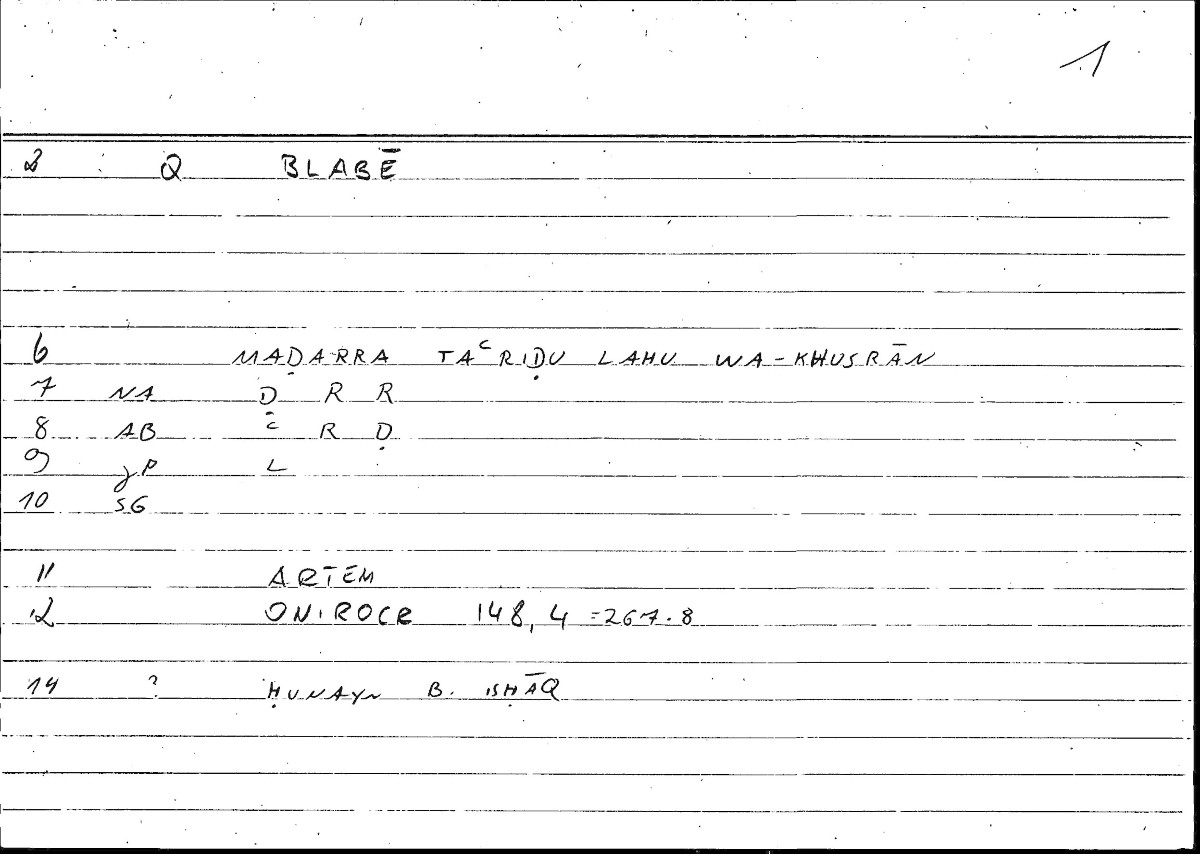 1
2 : Q BLABĒ
6 MAḌARRA TAʿRIḌU LAHU WA-KHUSRĀN
7 NA Ḍ R R
8 AB ʿ R Ḍ
9 JP L
10 SG
11 ARTEM
12 ONIROCR 148, 4 =267.8
14 ? ḤUNAYN B. ISḤĀQ